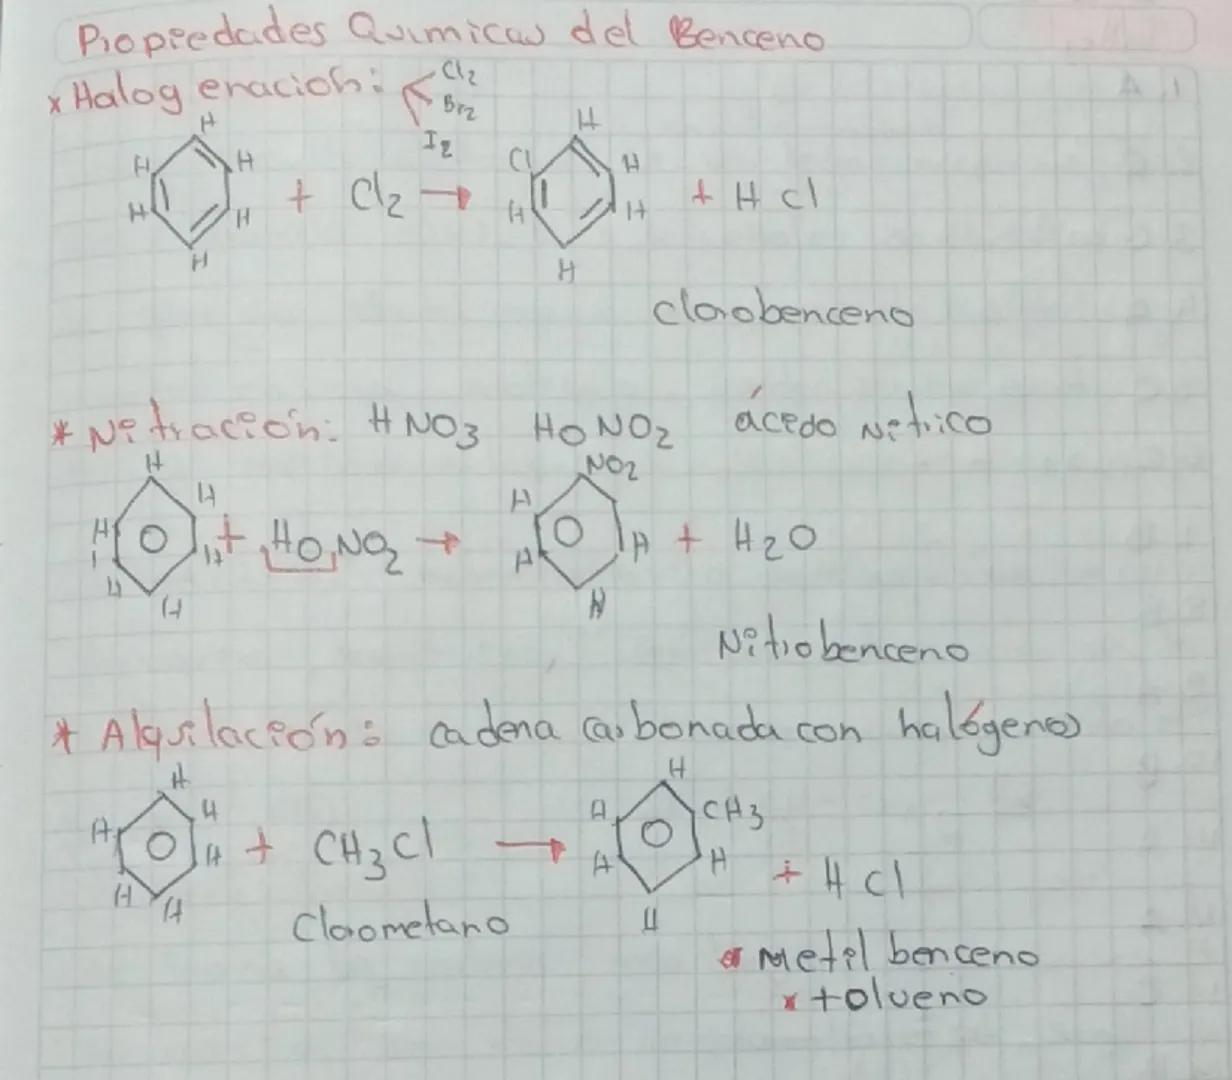 Propiedades Químicas del Benceno
x Halogenación: Cl2
Br2
I2
H
H H
H H
H
+ Cl2 →
H
Cl H
H H
H
+ H Cl
clorobenceno
* Nitración: HNO3 HONO2 ácido Nítrico
H
H H
H H
H
+ HONO2 →
NO2
H
H H
H
+ H2O
Nitrobenceno
* Alquilación: cadena carbonada con halógenos
H
H H
H H
H
+ CH3Cl →
H
H CH3
H H
H
+ H Cl
Clorometano
Metil benceno
x tolueno